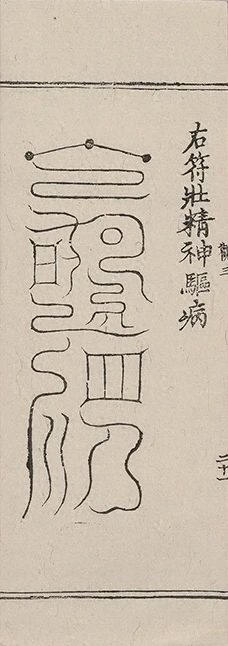 右符壯精神驅病
二十一